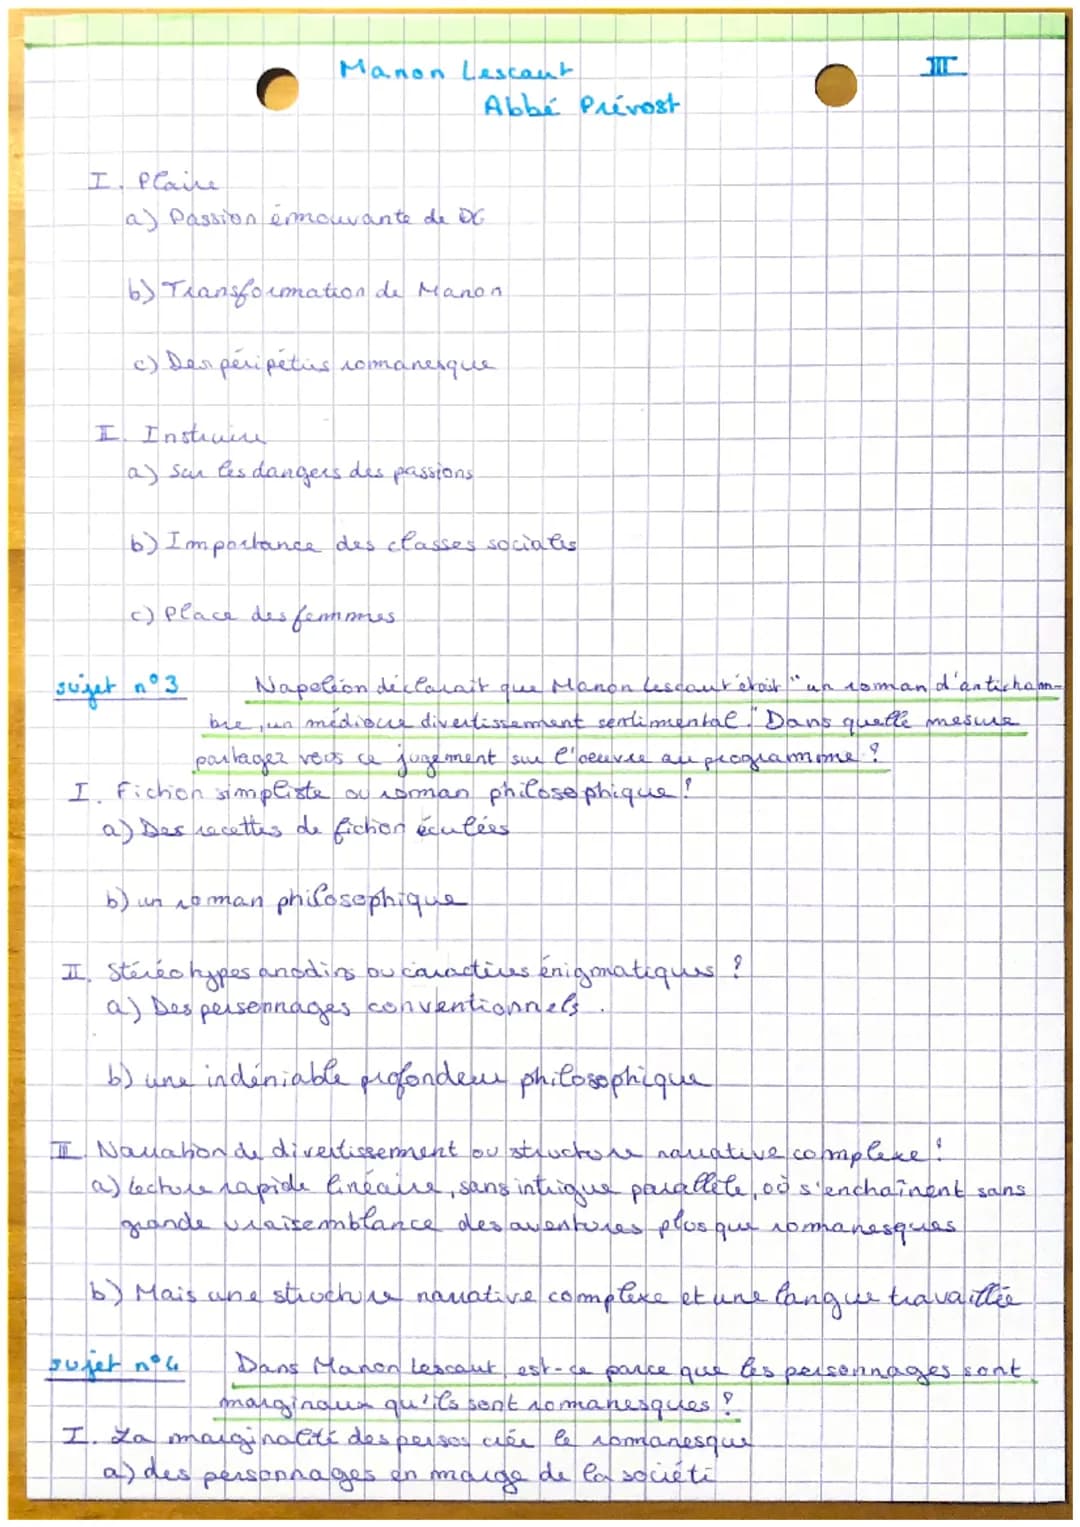 Manon Lescaut
III
Abbé Prévost
I. Plaire
a) Passion émouvante de DG
b) Transformation de Manon
c) Des péripéties romanesque
II. Instruire
a) Sur les dangers des passions
b) Importance des classes sociales
c) Place des femmes
sujet n°3 Napoléon déclarait que Manon Lescaut était "un roman d'anticham-
bre, un médiocre divertissement sentimental." Dans quelle mesure
partagez vous ce jugement sur l'oeuvre au programme ?
I. Fiction simpliste ou roman philosophique ?
a) Des recettes de fiction éculées
b) un roman philosophique
II. Stéréotypes anodins ou caractères énigmatiques ?
a) Des personnages conventionnels.
b) une indéniable profondeur philosophique
III. Narration de divertissement ou structure narrative complexe ?
a) Lecture rapide linéaire, sans intrigue parallèle, où s'enchaînent sans
grande vraisemblance des aventures plus que romanesques
b) Mais une structure narrative complexe et une langue travaillée
sujet n°4 Dans Manon Lescaut, est-ce parce que les personnages sont
marginaux qu'ils sont romanesques ?
I. La marginalité des persos crée le romanesque
a) des personnages en marge de la société